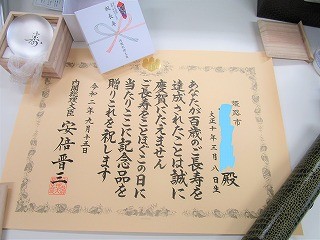 寿
祝長寿
姫路市
大正十年三月八日生
殿
あなたが百歳のご長寿を
達成されたことは誠に
慶賀にたえません
ご長寿をことほぐこの日に
当たりここに記念品を
贈りこれを祝します
令和二年九月十五日
内閣総理大臣 安倍晋三